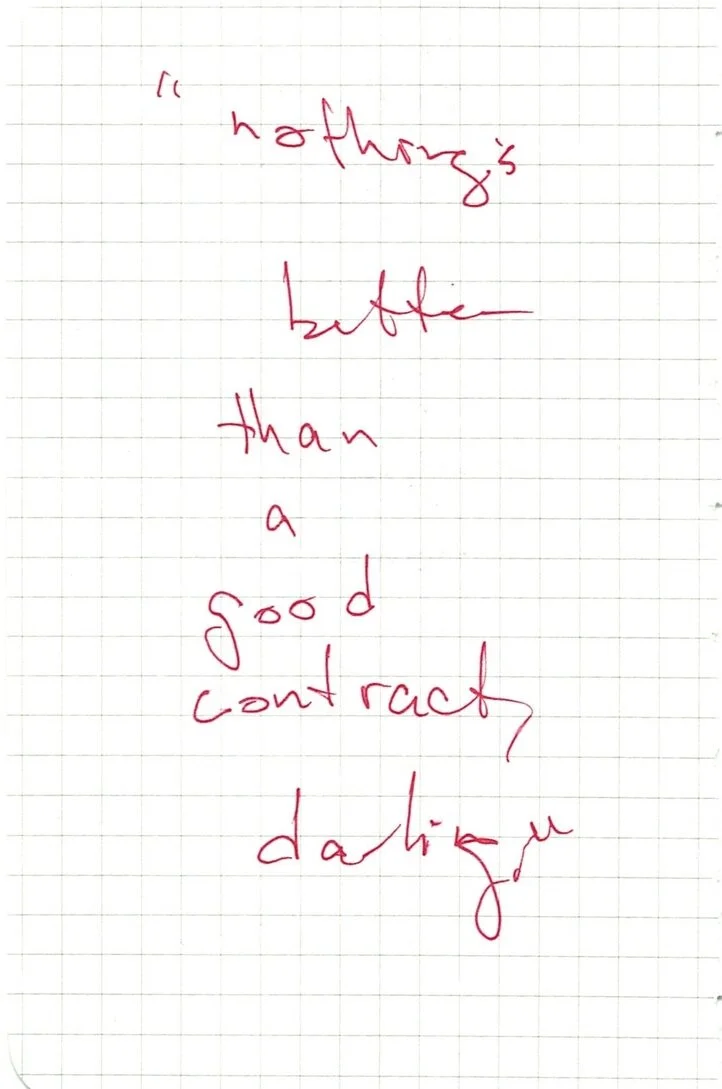 "nothing's
better
than
a
good
contract,
darling."